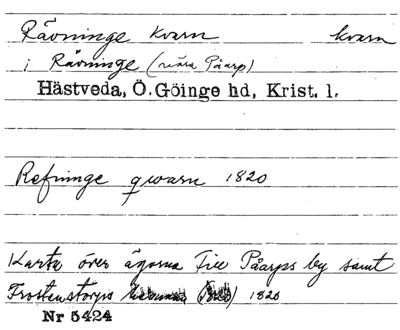 Rävninge kvarn kvarn
i Rävninge (nära Påarp)
Hästveda, Ö.Göinge hd, Krist. l.
Refninge qwarn 1820
Karta över ägorna Till Påarps by samt
Frostentorps 1820
Nr 5424